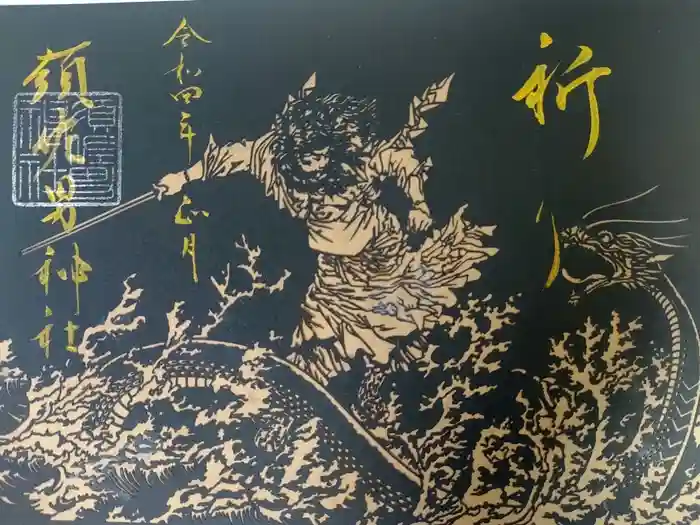 祈り
令和四年正月
須男神社